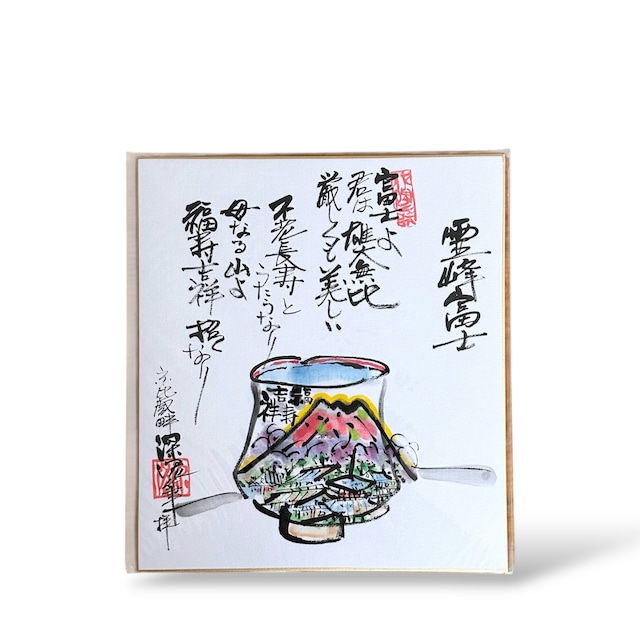 霊峰富士
富士よ
君は雄大無比
厳しくも美しい
不老長寿と
うたうなり
母なる山よ
福寿吉祥 招くなり
福寿
吉祥
比叡畔